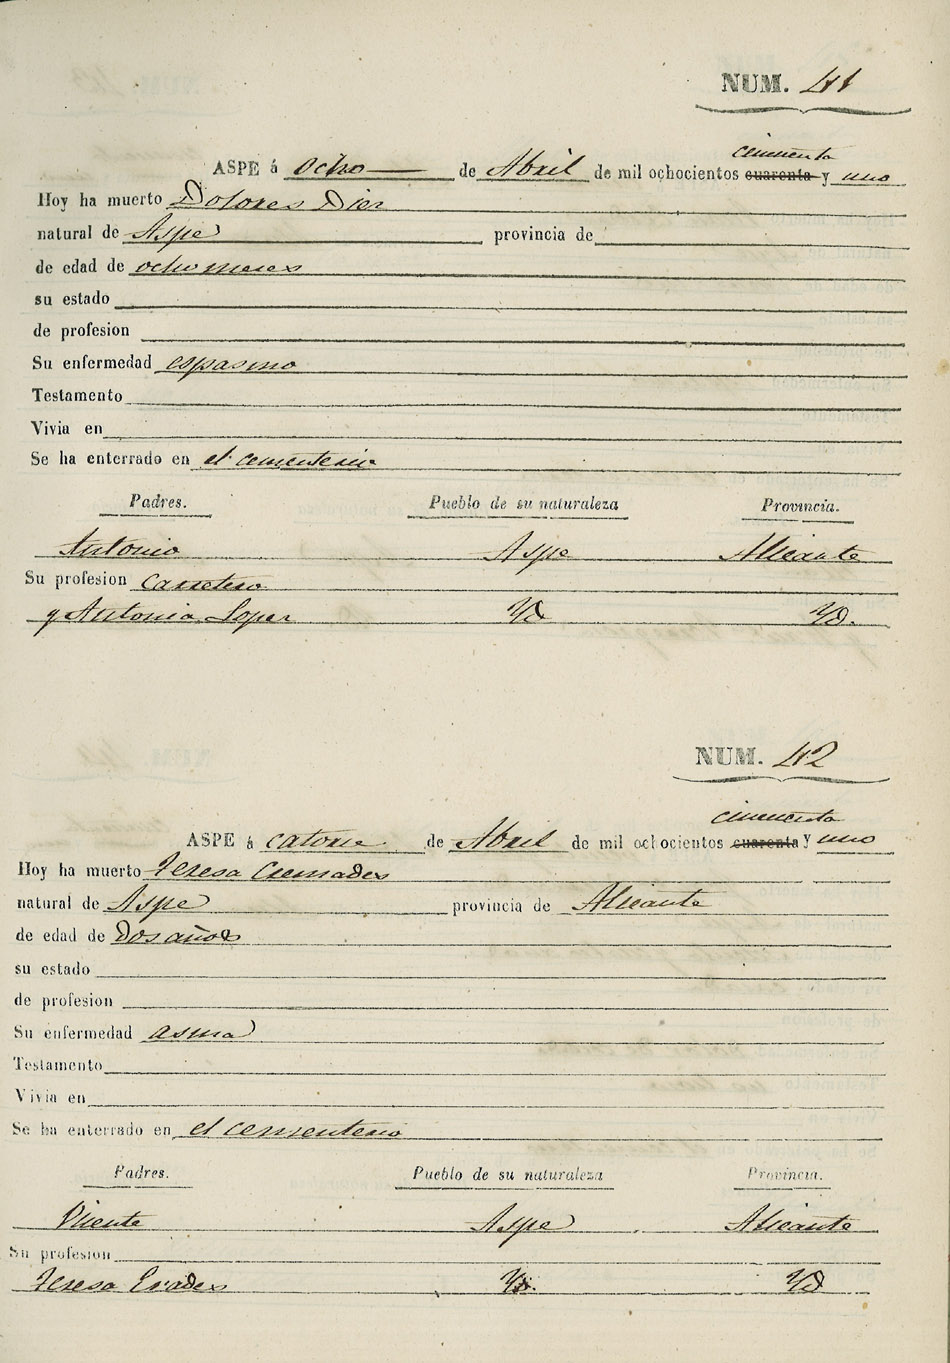 NUM. 41
cincuenta
ASPE á ocho de Abril de mil ochocientos cuarenta y uno
Hoy ha muerto Dolores Dies
natural de Aspe provincia de
de edad de ocho meses
su estado
de profesion
Su enfermedad espasmo
Testamento
Vivia en
Se ha enterrado en el cementerio
Padres. Pueblo de su naturaleza Provincia.
Antonio Aspe Alicante
Su profesion Carretero
y Antonia Lopez Yd Yd.
NUM. 42
cincuenta
ASPE á catorce de Abril de mil ochocientos cuarenta y uno
Hoy ha muerto Teresa Cremades
natural de Aspe provincia de Alicante
de edad de Dos años
su estado
de profesion
Su enfermedad asma
Testamento
Vivia en
Se ha enterrado en el cementerio
Padres. Pueblo de su naturaleza Provincia.
Vicente Aspe Alicante
Su profesion
Teresa Erades Yd. Yd